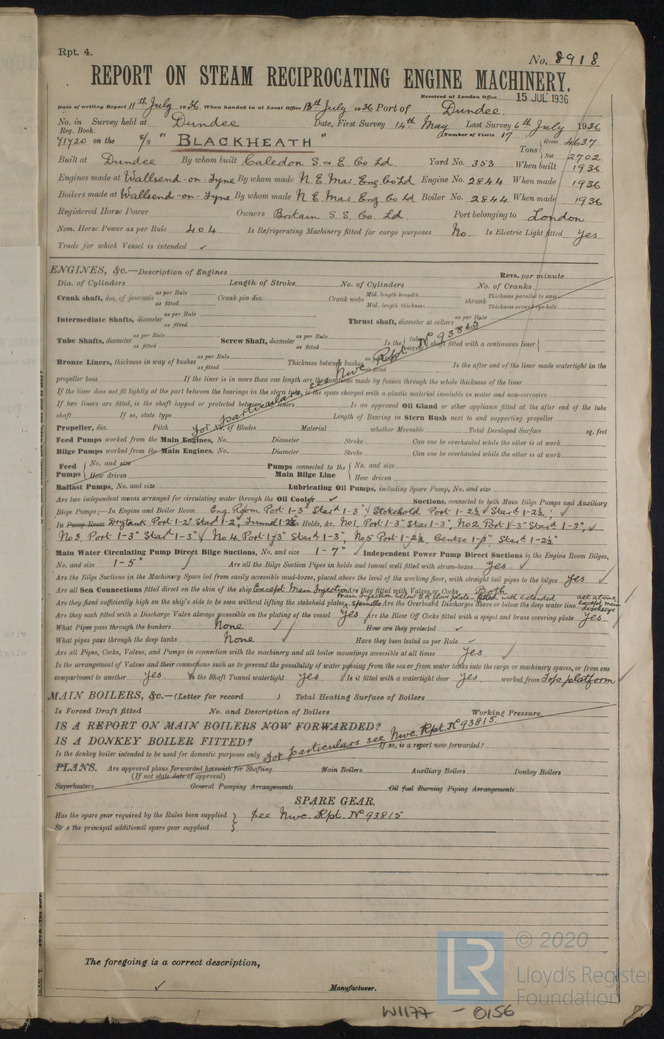 Rpt. 4.
No. 8918
REPORT ON STEAM RECIPROCATING ENGINE MACHINERY.
Received at London Office 15 JUL 1936
Date of writing Report 11th July 1936 When handed in at Local Office 13th July 1936 Port of Dundee
No. in Survey held at Dundee Date, First Survey 14th May Last Survey 6th July 1936
Reg. Book. Number of Visits 17
41420 on the S/S "BLACKHEATH" Tons Gross 4637
Net 2702
Built at Dundee By whom built Caledon S & E Co Ld. Yard No. 353 When built 1936
Engines made at Wallsend-on-Tyne By whom made N.E. Mar. Eng Co Ld Engine No. 2844 When made 1936
Boilers made at Wallsend-on-Tyne By whom made N.E. Mar. Eng Co Ld Boiler No. 2844 When made 1936
Registered Horse Power Owners Britain S.S. Co. Ld. Port belonging to London
Nom. Horse Power as per Rule 404 Is Refrigerating Machinery fitted for cargo purposes No. Is Electric Light fitted Yes
Trade for which Vessel is intended ✓
ENGINES, &c.—Description of Engines Revs. per minute
Dia. of Cylinders Length of Stroke No. of Cylinders No. of Cranks
Crank shaft, dia. of journals as per Rule as fitted Crank pin dia. Crank webs Mid. length breadth Mid. length thickness shrunk Thickness parallel to axis Thickness around eye-hole
Intermediate Shafts, diameter as per Rule as fitted Thrust shaft, diameter at collars as per Rule
Tube Shafts, diameter as per Rule as fitted Screw Shaft, diameter as per Rule as fitted Is the tube screw shaft fitted with a continuous liner
Bronze Liners, thickness in way of bushes as per Rule as fitted Thickness between bushes as per Rule as fitted Is the after end of the liner made watertight in the
propeller boss If the liner is in more than one length are the junctions made by fusion through the whole thickness of the liner
For particulars see Nwc. Rpt. No 93815
If the liner does not fit tightly at the part between the bearings in the stern tube, is the space charged with a plastic material insoluble in water and non-corrosive
If two liners are fitted, is the shaft lapped or protected between the liners Is an approved Oil Gland or other appliance fitted at the after end of the tube
shaft If so, state type Length of Bearing in Stern Bush next to and supporting propeller
Propeller, dia. Pitch No. of Blades Material whether Moveable Total Developed Surface sq. feet
Feed Pumps worked from the Main Engines, No. Diameter Stroke Can one be overhauled while the other is at work
Bilge Pumps worked from the Main Engines, No. Diameter Stroke Can one be overhauled while the other is at work
Feed Pumps No. and size How driven Pumps connected to the Main Bilge Line No. and size How driven
Ballast Pumps, No. and size Lubricating Oil Pumps, including Spare Pump, No. and size
Are two independent means arranged for circulating water through the Oil Cooler ✓ Suctions, connected to both Main Bilge Pumps and Auxiliary
Bilge Pumps;—In Engine and Boiler Room Eng Room Port 1-3" Starb 1-3" Stokehold Port 1-2½" Starb 1-2½"
In Pump Room Drytank Port 1-2" Starb 1-2", Tunnel 1-2½" Holds, &c. No1 Port 1-3" Starb 1-3", No2 Port 1-3" Starb 1-3", ✓
No3. Port 1-3" Starb 1-3" No4. Port 1-3" Starb 1-3", No5 Port 1-2½, Centre 1-3" Starb 1-2½"
Main Water Circulating Pump Direct Bilge Suctions, No. and size 1-7" Independent Power Pump Direct Suctions to the Engine Room Bilges,
No. and size 1-5" Are all the Bilge Suction Pipes in holds and tunnel well fitted with strum-boxes Yes ✓
Are the Bilge Suctions in the Machinery Space led from easily accessible mud-boxes, placed above the level of the working floor, with straight tail pipes to the bilges Yes ✓
Are all Sea Connections fitted direct on the skin of the ship Except Main Injection Are they fitted with Valves or Cocks Both
main injection below E.R. floor plates fitted with extended spindle
Are they fixed sufficiently high on the ship's side to be seen without lifting the stokehold plates Are the Overboard Discharges above or below the deep water line all above except main discharge
Are they each fitted with a Discharge Valve always accessible on the plating of the vessel Yes Are the Blow Off Cocks fitted with a spigot and brass covering plate Yes
What Pipes pass through the bunkers None ✓ How are they protected ✓
What pipes pass through the deep tanks None ✓ Have they been tested as per Rule ✓
Are all Pipes, Cocks, Valves, and Pumps in connection with the machinery and all boiler mountings accessible at all times Yes ✓
Is the arrangement of Valves and their connections such as to prevent the possibility of water passing from the sea or from water tanks into the cargo or machinery spaces, or from one
compartment to another Yes Is the Shaft Tunnel watertight Yes ✓ Is it fitted with a watertight door Yes ✓ worked from Top platform ✓
MAIN BOILERS, &c.—(Letter for record ) Total Heating Surface of Boilers
Is Forced Draft fitted No. and Description of Boilers Working Pressure
IS A REPORT ON MAIN BOILERS NOW FORWARDED?
IS A DONKEY BOILER FITTED? If so, is a report now forwarded?
For particulars see Nwc. Rpt. No 93815.
Is the donkey boiler intended to be used for domestic purposes only
PLANS. Are approved plans forwarded herewith for Shafting Main Boilers Auxiliary Boilers Donkey Boilers
(If not state date of approval)
Superheaters General Pumping Arrangements Oil fuel Burning Piping Arrangements
SPARE GEAR.
Has the spare gear required by the Rules been supplied See Nwc. Rpt. No 93815
State the principal additional spare gear supplied
The foregoing is a correct description,
✓ Manufacturer.
© 2020
LR Lloyd's Register
Foundation
W1177 - 0156